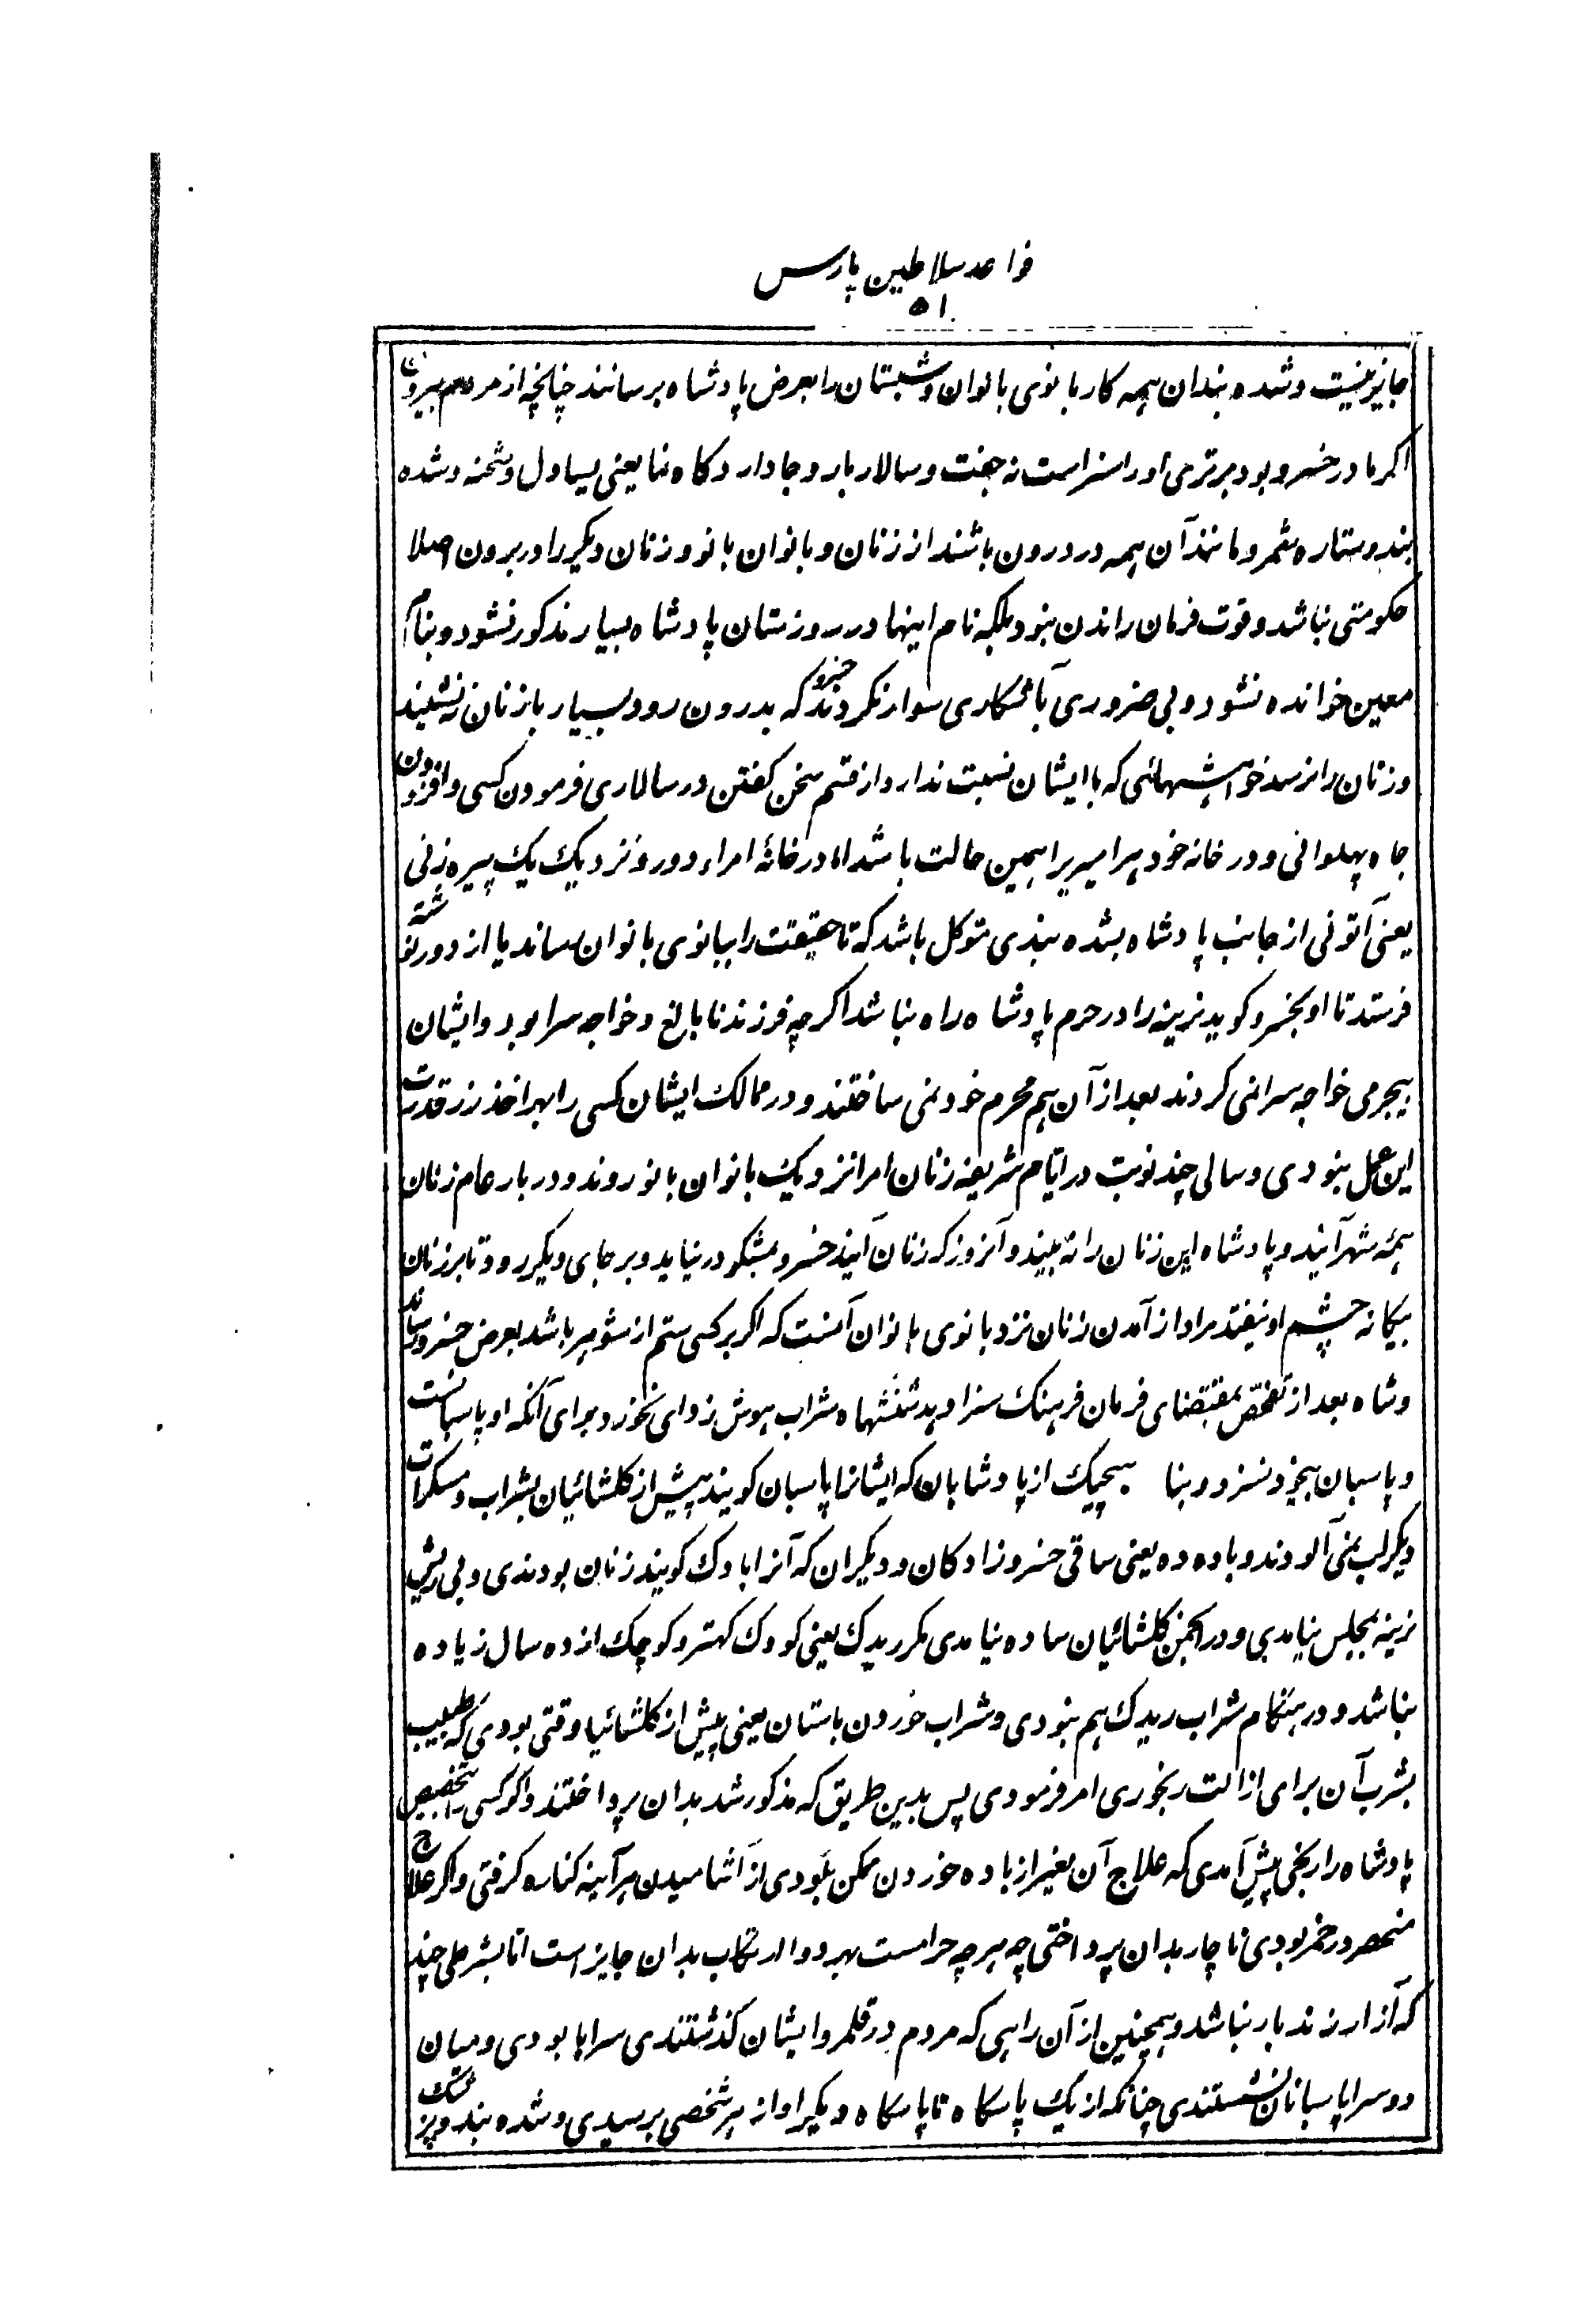 قواعد سلاطین پارس
۵۱
جایز نیست و شده بندان همه کار بانوی بانوان و شبستان را بعرض پادشاه برسانند چنانچه از مردم بیرون
اکر مادر خسرو بود برتری او را سزاست نه جفت و سالار بار و جادار دکاه نما یعنی یساول و شحنه و شده
بند و ستاره شمر و مانند آن همه در درون باشند از زنان و بانوان بانو و زنان دیکر را در برون اصلا
حکومتی نباشد و قوت فرمان راندن نبود بلکه نام اینها در روزستان پادشاه بسیار مذکور نشود و بنام
معین خوانده نشود و بی ضروری آشکاری سوار نکردند خسرو که بدرون رود بسیار با زنان نه نشیند
و زنان را نرسد خواهشهائی که با ایشان نسبت ندارد از قسم سخن کفتن در سالاری فرمودن کسی و افزودن
جاه پهلوانی و در خانه خود هر امیر را همین حالت باشد اما در خانهٔ امراء دور و نزدیک یک پیره زنی
یعنی آتونی از جانب پادشاه بشده بندی متوکل باشد که تا حقیقت را ببانوی بانوان رساند یا از دور نوشته
فرستد تا او بخسرو کوید نرینه را در حرم پادشاه راه نباشد اکرچه فرزند نابالغ و خواجه سرا بود و ایشان
بیجرمی خواجه سرا نمی کردند بعد از آن هم محرم خود نمی ساختند و در ممالک ایشان کسی را بهر اخذ زر قدرت
این عمل نبودی و سالی چند نوبت در ایام شریفه زنان امرا نزدیک بانوان بانو روند و در بار عام زنان
همهٔ شهر آیند و پادشاه این زنان را نه بیند و آنروز که زنان آیند خسرو بمشکو در نیاید و بر جای دیکر رود تا بر زنان
بیکانه چشم او نیفتد مراد از آمدن زنان نزد بانوی بانوان آنست که اکر بر کسی ستم از شوهر باشد بعرض خسرو رساند
و شاه بعد از تفحص بمقتضای فرمان فرهنک سزا دهد شنشهاه شراب هوش زدای نخورد برای آنکه او پاسبانست
و پاسبان بیخود نسزد و بنا هیچیک از پادشاهان که ایشانرا پاسبان کویند پیش از کلشائیان بشراب و مسکرات
دیکر لب نمی آلودند و باده ده یعنی ساقی خسرو زادکان و دیکران که آنرا بادک کویند زنان بودندی و بی ریش
نرینه بمجلس نیامدی و در انجمن کلشائیان ساده نیامدی مکر ریدک یعنی کودک کهتر و کوچک از ده سال زیاده
نباشد و در هنکام شراب ریدک هم نبودی و شراب خوردن باستان یعنی پیش از کلشائیا وقتی بودی که طبیب
بشرب آن برای ازالت رنجوری امر فرمودی پس بدین طریق که مذکور شد بدان پرداختند و اکر کسی را تخصیص
پادشاه را رنجی پیش آمدی که علاج آن بغیر از باده خوردن ممکن بودی از آشامیدن هر آینه کناره کرفتی و اکر علاج
منحصر در خمر بودی ناچار بدان پرداختی چه هر چه حرامست بهر دوا ارتکاب بدان جایز است اما بشرطی چند
که آزار زندبار نباشد و همچنین از آن راهی که مردم در قلمرو ایشان کذشتندی سراها بودی و میان
دو سرا پاسبانان نشستندی چنانکه از یک پاسکاه تا پاسکاه دیکر اواز هر شخصی برسیدی و شده بند و پزشک